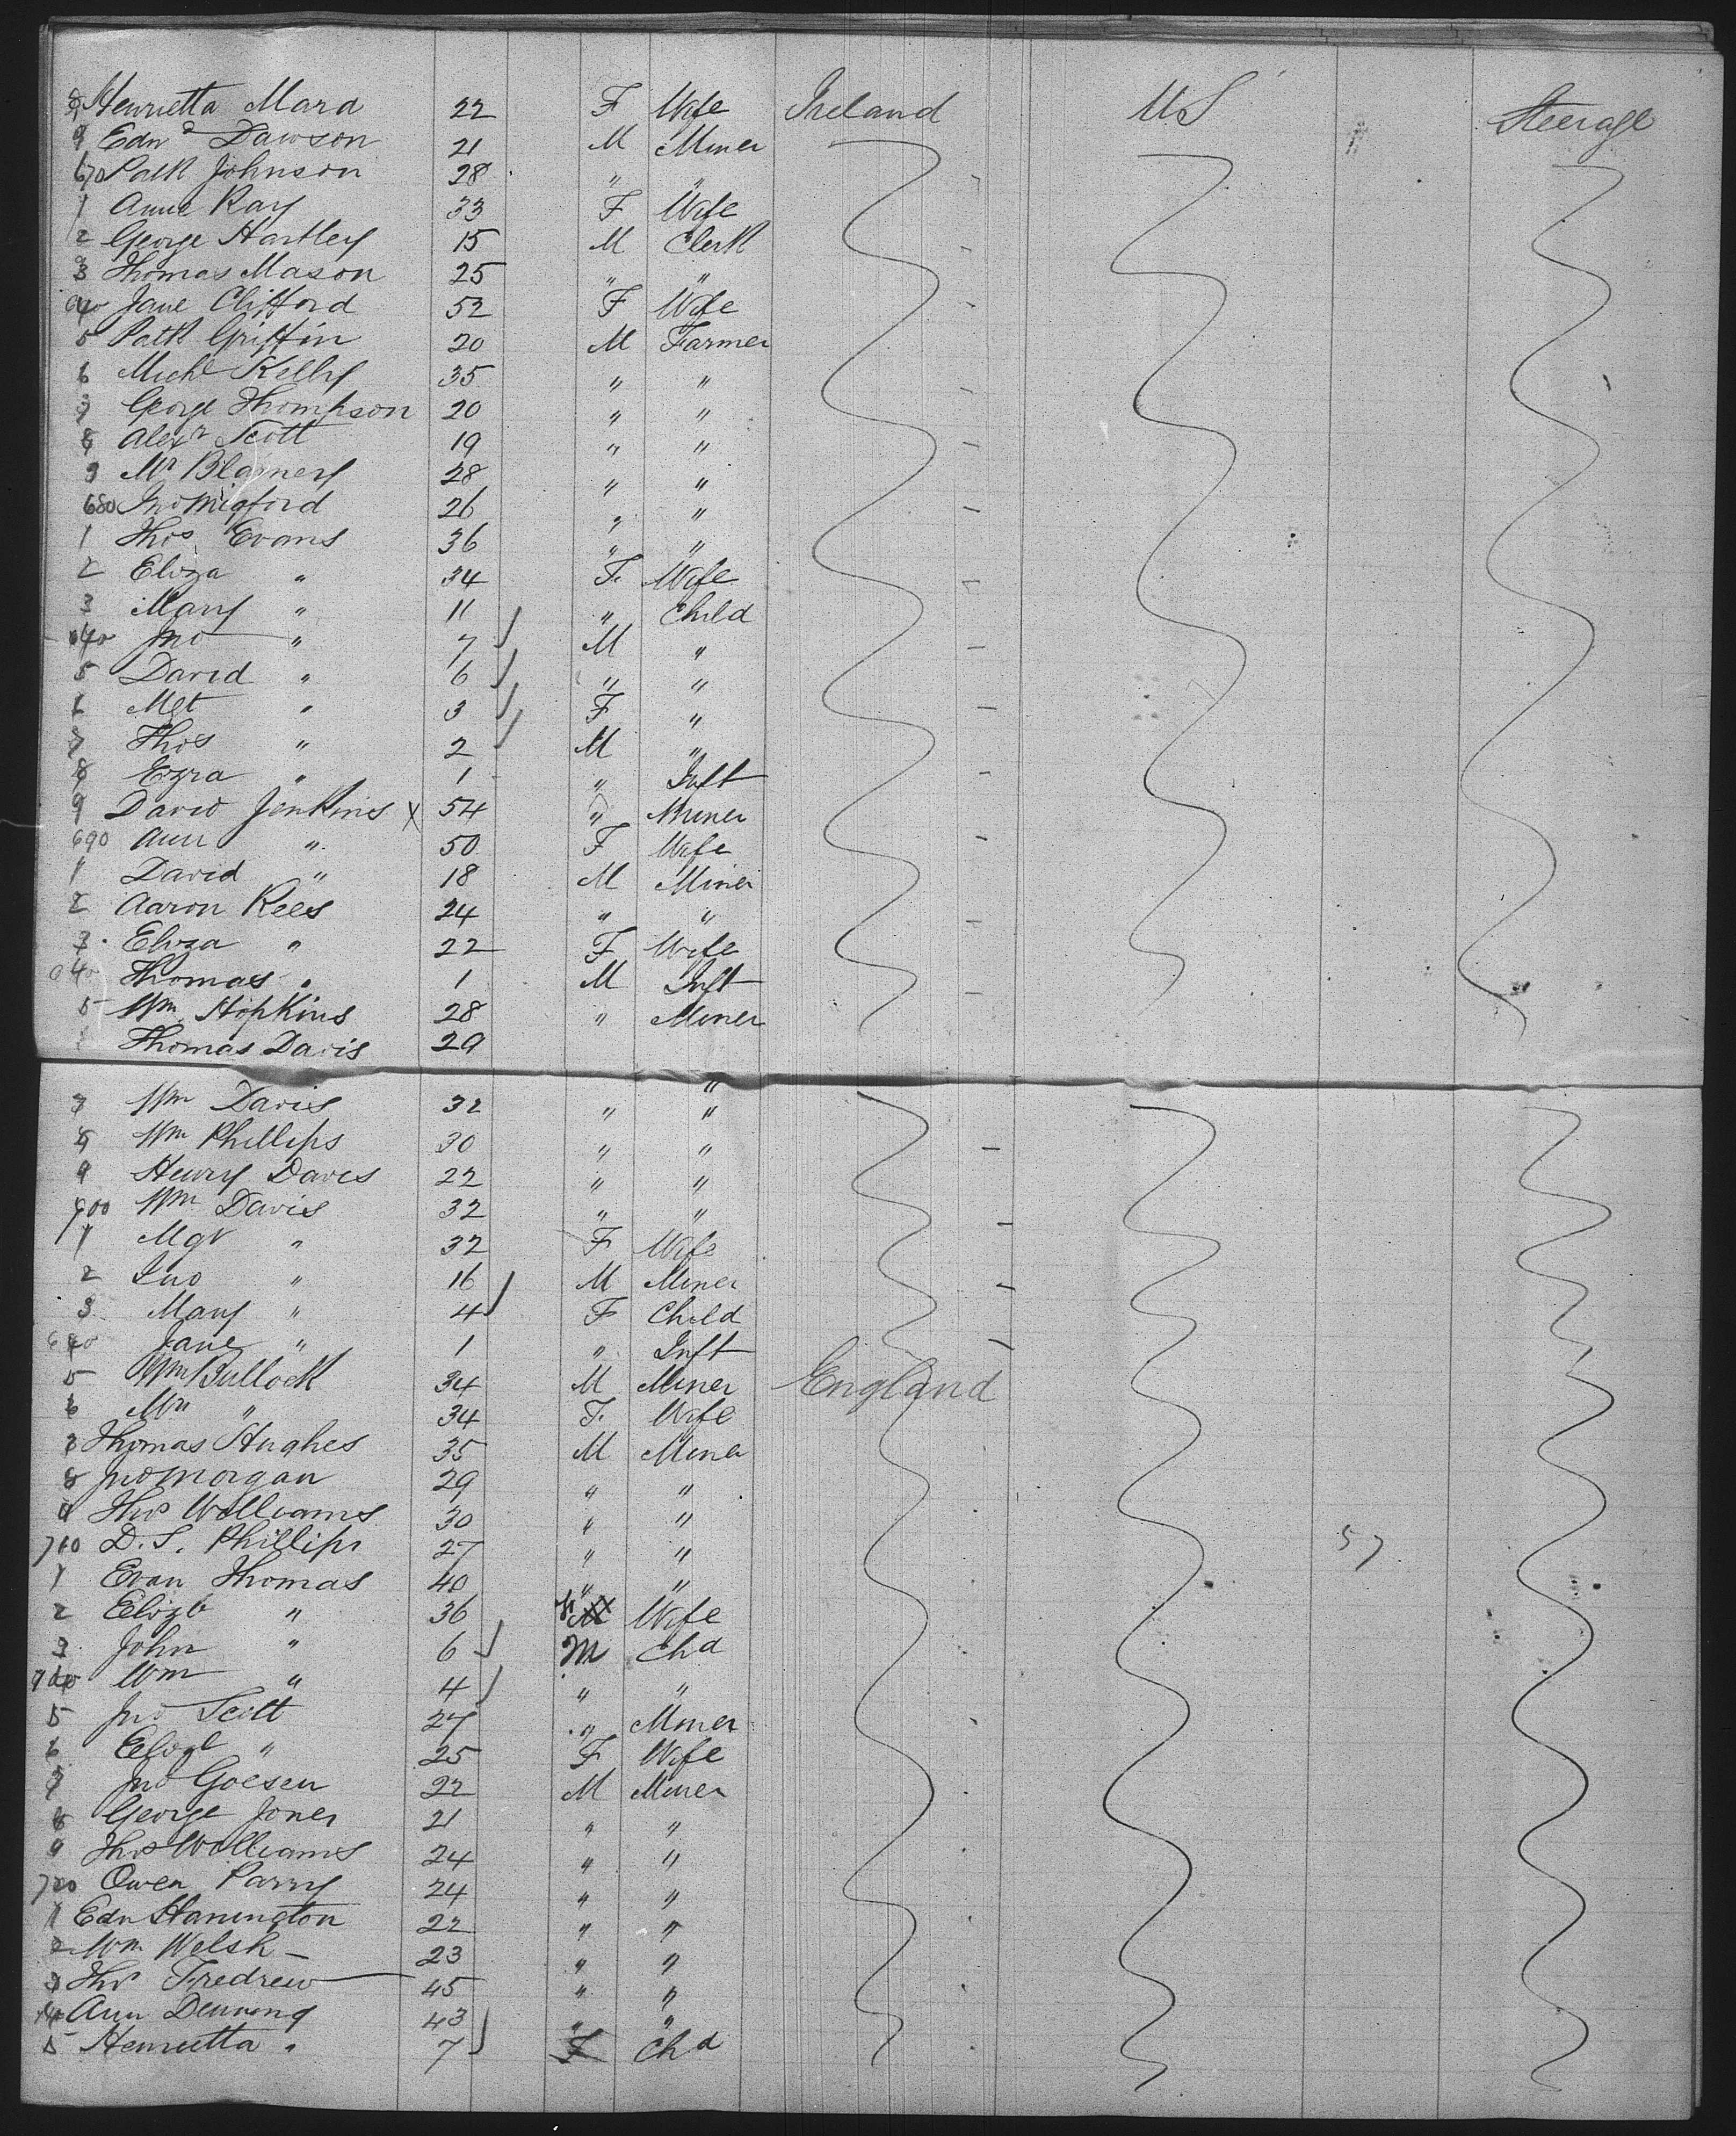 8 Henrietta Mara 22 F Wife Ireland US Steerage
9 Edwd Dawson 21 M Miner
670 Patk Johnson 28 " "
1 Anne Ray 33 F Wife
2 George Hartley 15 M Clerk
3 Thomas Mason 25 " "
4 Jane Clifford 52 F Wife
5 Patk Griffin 20 M Farmer
6 Michl Kelly 35 " "
7 George Thompson 20 " "
8 Alexr Scott 19 " "
9 Mr Blainery 28 " "
680 Jno Migford 26 " "
1 Thos Evans 36 " "
2 Eliza " 34 F. Wife
3 Mary " 11 " Child
4 Jno " 7 M "
5 David " 6 " "
6 Mgt " 3 F "
7 Thos " 2 M "
8 Ezra " 1 " Inft
9 David Jenkins X 54 " Miner
690 Ann " 50 F Wife
1 David " 18 M Miner
2 Aaron Rees 24 " "
3 Eliza " 22 F Wife
4 Thomas " 1 M Inft
5 Wm Hopkins 28 " Miner
Thomas Davis 29 "
7 Wm Davis 32 " "
8 Wm Phillips 30 " "
9 Henry Davis 22 " "
700 Wm Davis 32 " "
1 Mgt " 32 F Wife
2 Jno " 16 M Miner
3 Mary " 4 F Child
4 Jane " 1 " Inft
5 Wm Bullock 34 M Miner England
6 Mrs " 34 F. Wife
7 Thomas Hughes 35 M Miner
8 Jno Morgan 29 " "
9 Thos Williams 30 " "
710 D. S. Phillips 27 " " 57
1 Evan Thomas 40 " "
2 Elizb " 36 F Wife
3 John " 6 M Chd
4 Wm " 4 " "
5 Jno Scott 27 " Miner
6 Eliz " 25 F Wife
7 Jno Goesen 22 M Miner
8 George Jones 21 " "
9 Thos Williams 24 " "
720 Owen Parry 24 " "
1 Edw Hanington 22 " "
2 Wm Welsh 23 " "
3 Thos Fredrew 45 " "
4 Ann Denning 43 " "
5 Henrietta " 7 F Chd